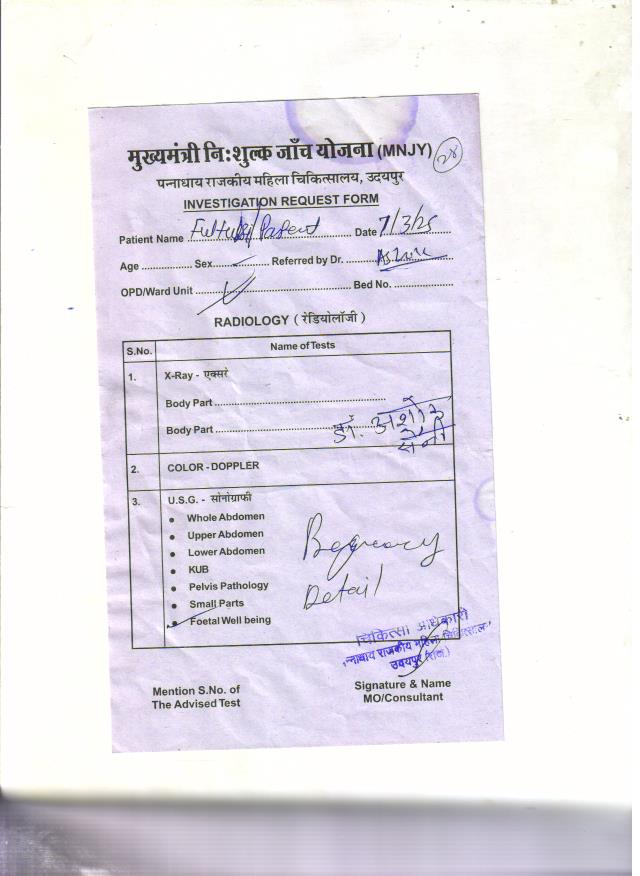 मुख्यमंत्री निःशुल्क जाँच योजना (MNJY) 28
पन्नाधाय राजकीय महिला चिकित्सालय, उदयपुर
INVESTIGATION REQUEST FORM
Patient Name Date 7/3/25
Age Sex Referred by Dr.
OPD/Ward Unit Bed No.
RADIOLOGY ( रेडियोलॉजी )
S.No. Name of Tests
1. X-Ray - एक्सरे
Body Part
Body Part डॉ. अशोक
2. COLOR - DOPPLER
3. U.S.G. - सोनोग्राफी
Whole Abdomen
Upper Abdomen
Lower Abdomen
KUB
Pelvis Pathology
Small Parts
Foetal Well being
Detail
चिकित्सा अधिकारी
पन्नाधाय राजकीय महिला चिकित्सालय
उदयपुर (राज.)
Mention S.No. of
The Advised Test
Signature & Name
MO/Consultant